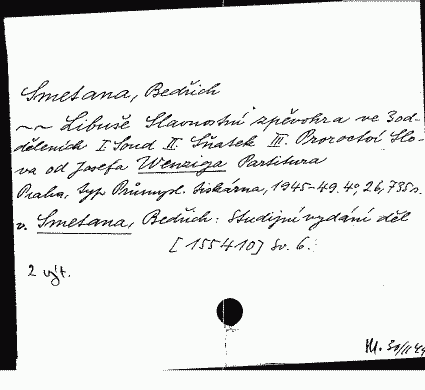 Smetana, Bedřich
~~ Libuše Slavnostní zpěvohra ve 3 od-
děleních I Soud II. Sňatek III. Proroctví Slo-
va od Josefa Wenziga Partitura
Praha, typ. Průmysl. tiskárna, 1945-49. 4°, 26, 735 s.
v. Smetana, Bedřich: Studijní vydání děl
[155410] Sv. 6.
2 výt.